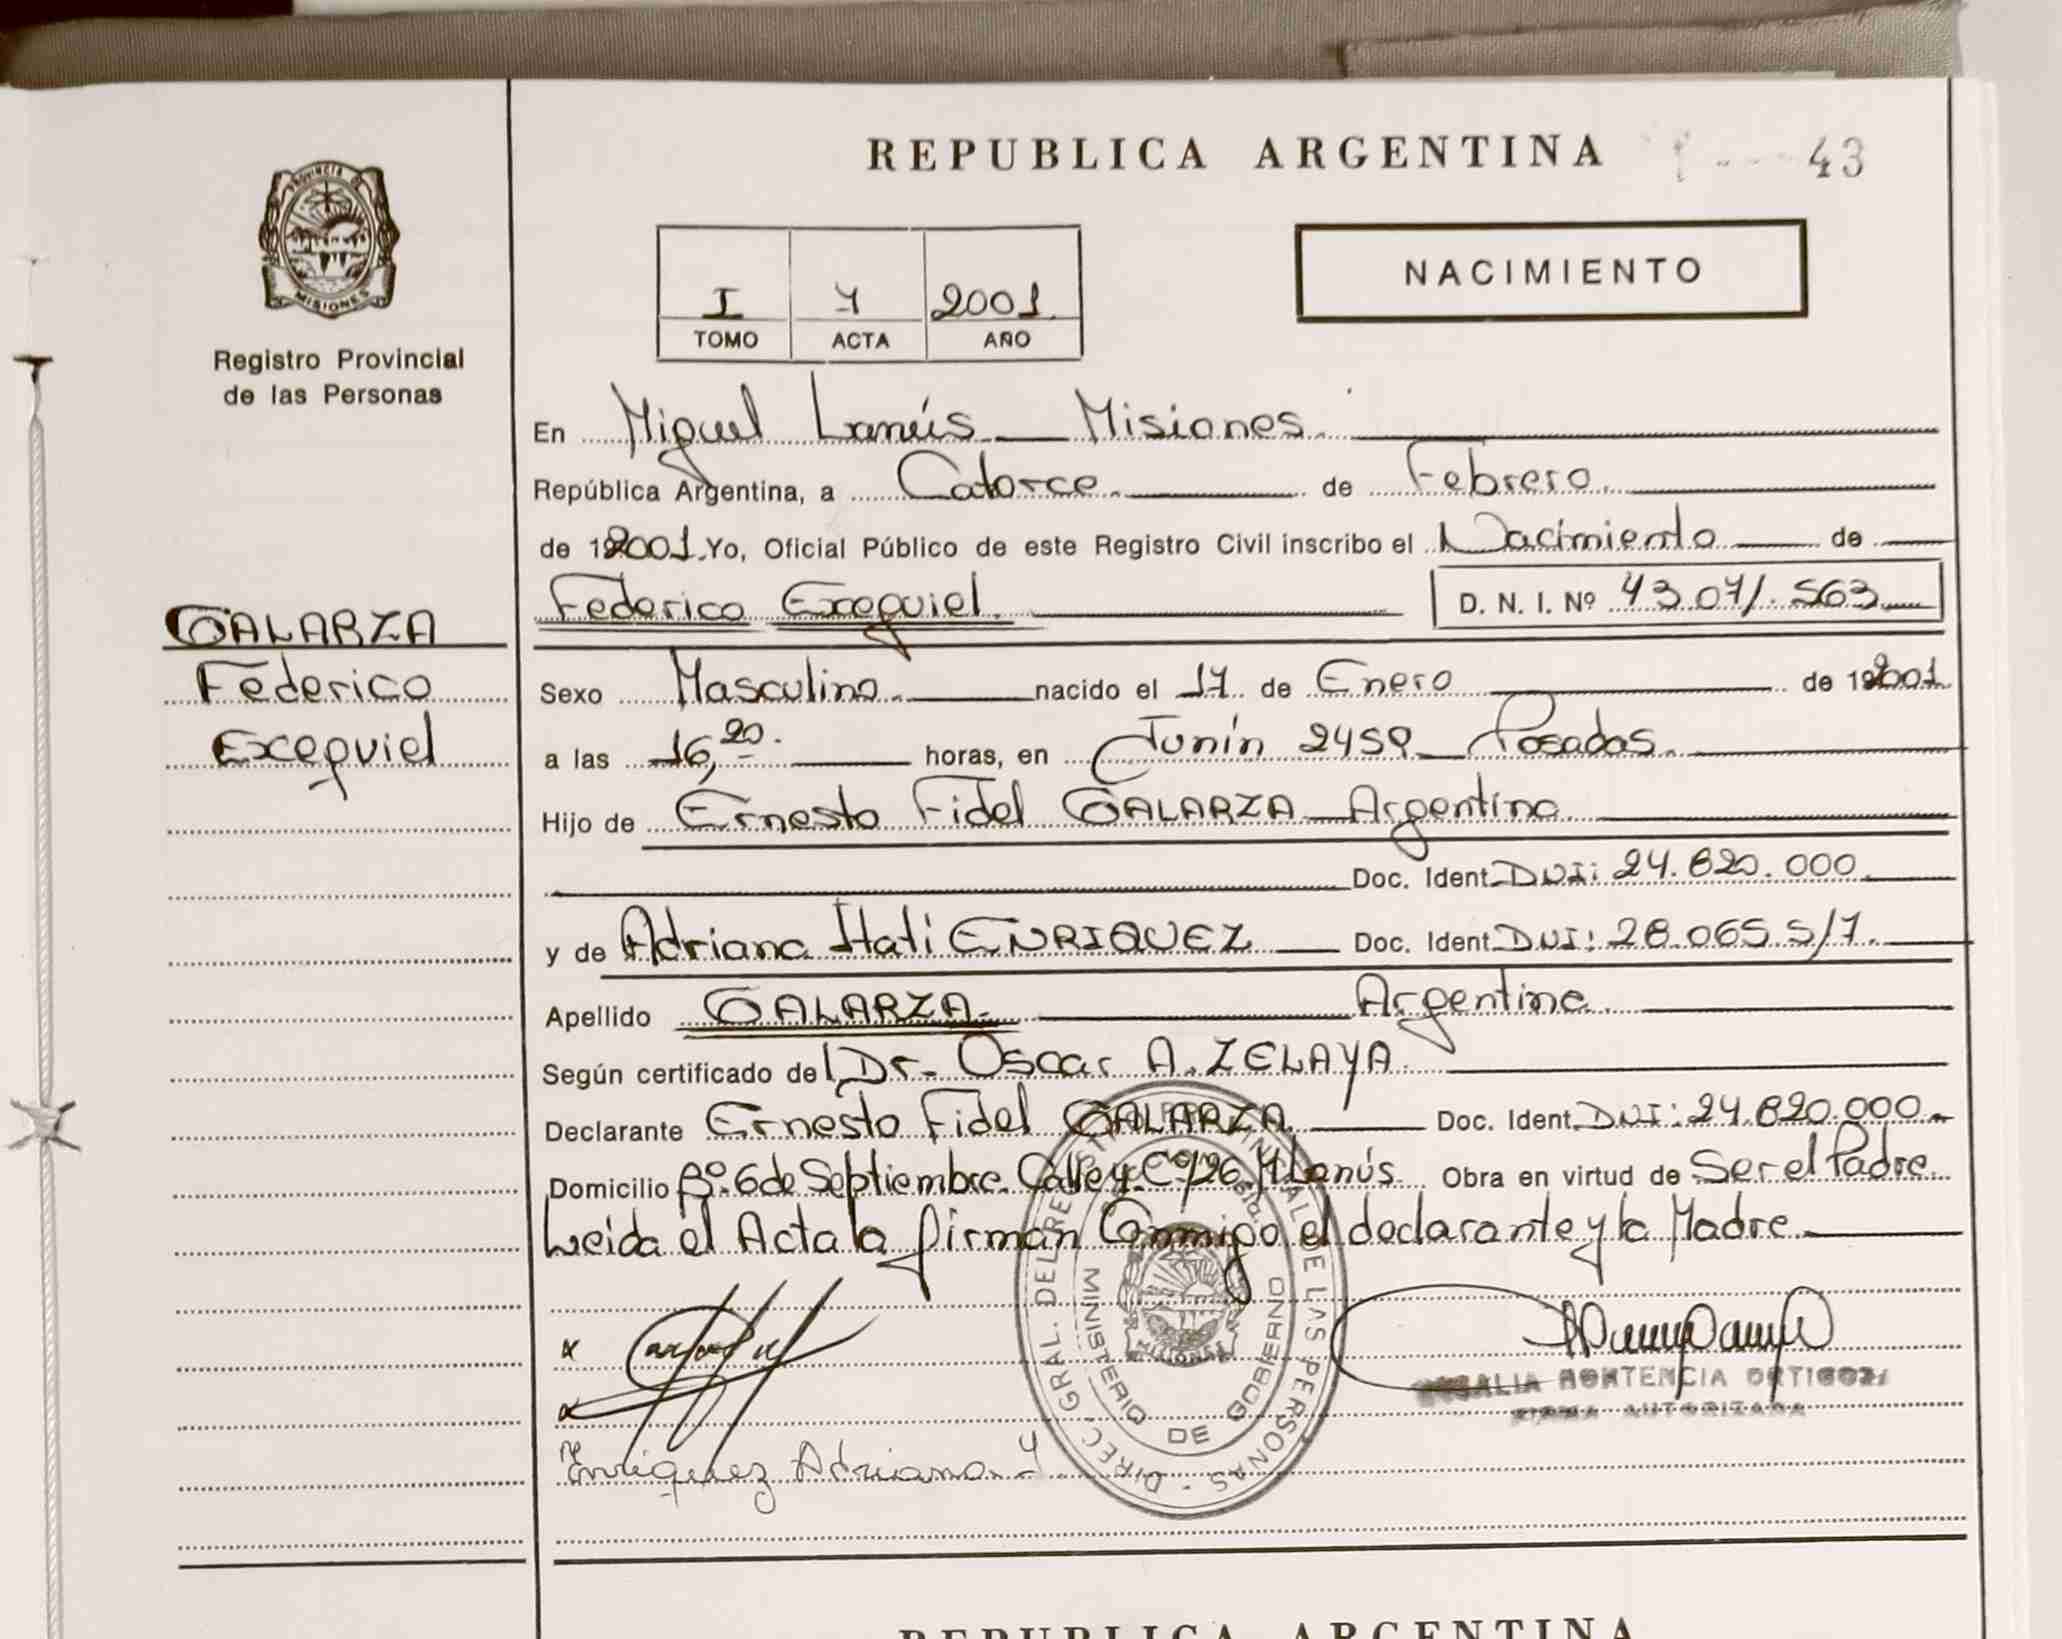 REPUBLICA ARGENTINA
43
PROVINCIA DE
MISIONES
Registro Provincial
de las Personas
I 2001
TOMO ACTA AÑO
NACIMIENTO
En Miguel Lanús Misiones
República Argentina, a Catorce de Febrero
de 2001. Yo, Oficial Público de este Registro Civil inscribo el Nacimiento de
GALARZA
Federico Exequiel D. N. I. Nº
Federico
Sexo Masculino nacido el de Enero de 2001
Exequiel
a las 16,20. horas, en Junín Posadas.
Hijo de Ernesto Fidel GALARZA Argentino
Doc. Ident. DNI: 24.820.000
y de Adriana Itatí ENRIQUEZ Doc. Ident. DNI:
Apellido GALARZA Argentina
Según certificado del Dr. Oscar A. ZELAYA
Declarante Ernesto Fidel GALARZA Doc. Ident. DNI: 24.820.000
Domicilio Bº. 6 de Septiembre. Calle Lanús Obra en virtud de Ser el Padre
Leida el Acta la firman Conmigo el declarante y la Madre
DIREC. GRAL. DEL REGISTRO PROVINCIAL DE LAS PERSONAS
MINISTERIO DE GOBIERNO
MISIONES
HORTENCIA
FIRMA AUTORIZADA
Enriquez Adriana
REPUBLICA ARGENTINA